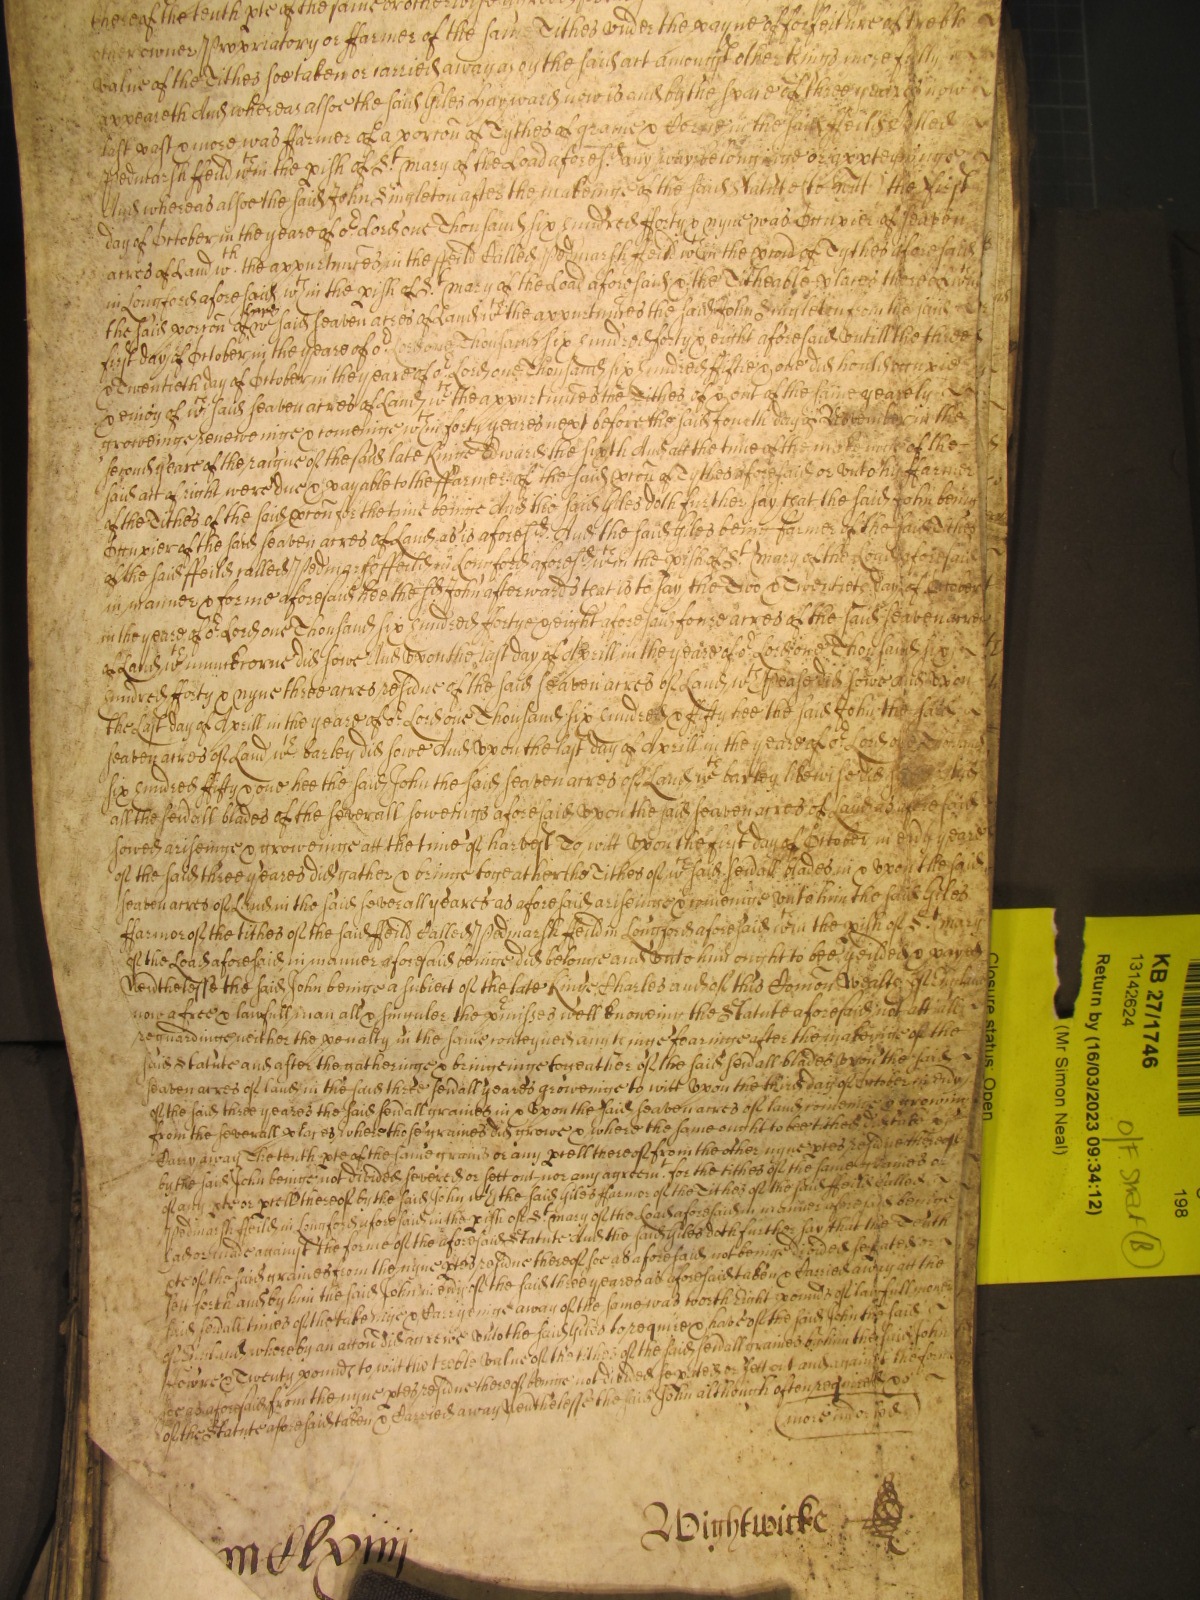 thereof the tenth pte of the same or otherwise
other owner Propriatory or ffarmer of the same Tithes under the payne of forfeiture of treble
value of the Tithes soe taken or carried away as by the said act amongst other things more fully
appeareth And whereas alsoe the said Giles Hayward now is and by the space of three yeares now
last past & more was ffarmer of a porcon of Tythes of graine & Corne in the said ffeild Called
Pedmarsh ffeild wthin the pish of St Mary of the Load aforesd any waye belonginge or apperteyninge
And whereas alsoe the said John Singleton after the makeinge of the said Statute to witt the first
day of October in the yeare of or Lord one Thousand six hundred fforty & nyne was Occupier of seaven
acres of Land wth the appurtnnces in the ffeild Called Pedmarsh ffeild wthin the porcon of Tythes aforesaid
in Longford aforesaid wthin the pish of St Mary of the Load aforesaid & the Titheable places thereof wthin
the said porcon of wch said seaven acres of Land wth the appurtnnces the said John Singleton from the said
first day of October in the yeare of or Lord one Thousand six hundred forty & eight aforesaid untill the three
& Twentieth day of October in the yeare of or Lord one Thousand six hundred fiftie & one did hould occupie
& enioy of wch said seaven acres of Land wth the appurtnnces the Tithes of & out of the same yearely
groweinge renewinge & comeinge wthin forty yeares next before the said fourth day of November in the
second yeare of the raigne of the said late Kinge Edward the sixth And att the time of the makeinge of the
said act of right were due & payable to the ffarmer of the said porcon of Tythes aforesaid or unto the ffarmer
of the Tithes of the said porcon for the time beinge And the said Giles doth further say that the said John beinge
Occupier of the said seaven acres of Land as is aforesd And the said Giles being farmer of the said Tithes
of the said ffeild called Pedmarsh ffeild in Longford aforesd wthin the pish of St Mary of the Load aforesaid
in manner & forme aforesaid hee the sd John afterwards that is to say the Two & Twentieth day of October
in the yeare of or Lord one Thousand six hundred fortye & eight aforesaid foure acres of the said seaven acres
of Land wth munckcorne did sowe And upon the last day of Aprill in the yeare of or Lord one Thousand six
hundred fforty & nyne three acres residue of the said seaven acres of Land wth Pease did sowe and upon
the last day of Aprill in the yeare of or Lord one Thousand six hundred & fifty hee the said John the said
seaven acres of Land wth barley did sowe And upon the last day of Aprill in the yeare of or Lord one Thousand
six hundred fifty & one hee the said John the said seaven acres of Land wth barley likewise did
all the seuall blades of the severall soweings aforesaid upon the said seaven acres of Land as aforesaid
sowed ariseinge & groweinge att the time of harvest To witt upon the first day of October in euy yeare
of the said three yeares did gather & bringe togeather the Tithes of wch said seuall blades in & upon the said
seaven acres of Land in the said severall yeares as aforesaid ariseinge & comeinge unto him the said Giles
ffarmor of the tithes of the said ffeild Called Pedmarsh ffeild in Longford aforesaid wthin the pish of St Mary
of the Load aforesaid in manner aforesaid beinge did belonge and unto him ought to bee yeilded & payed
Neutheless the said John beinge a subiect of the late Kinge Charles and of this Comon Wealth of England
now a free & lawfull man all & singuler the pmisses well knoweing the Statute aforesaid not att all
reguardinge neither the penalty in the same conteyned any thinge fearinge after the makeinge of the
said Statute and after the gatheringe & bringeinge togeather of the said seuall blades upon the said
seaven acres of land in the said three seuall yeares groweinge to witt upon the third day of October in euy
of the said three yeares the said seuall graines in & upon the said seaven acres of land comeinge & groweing
from the severall places where those graines did growe & where the same ought to bee tithed did take &
Carry away The tenth pte of the same grains or any pcell thereof from the other nyne ptes residue thereof
by the said John beinge not divided severed or sett out nor any agreemt for the tithes of the same graines or
of any pte or pcell thereof by the said John wth the said Giles ffarmor of the Tithes of the said ffeild Called
Pedmarsh ffeild in Longford aforesaid in the pish of St Mary of the Load aforesaid in manner aforesaid beinge
had or made against the forme of the aforesaid Statute And the said Giles doth further say that the Tenth
pte of the said graines from the nyne ptes residue thereof soe as aforesaid not beinge divided sepated or
sett forth and by him the said John in euy of the said three yeares as aforesaid taken & Carried away att the
said seuall times of the takeinge & Carryeinge away of the same was worth Eight pounds of lawfull money
of England whereby an accon did accrewe unto the said Giles to require & have of the said John the said
ffowre & Twenty pounds to witt the treble value of the tithes of the said seuall graines by him the said John
soe as aforesaid from the nyne ptes residue thereof beinge not divided sepated or sett out and against the forme
of the Statute aforesaid taken & Carried away Neutheless the said John although often required &c
more inde fol
mclviiij
Wightwicke
Closure status: Open
KB 27/1746
13142624
Return by (16/03/2023 09:34:12)
(Mr Simon Neal)
198
O/F Strat B